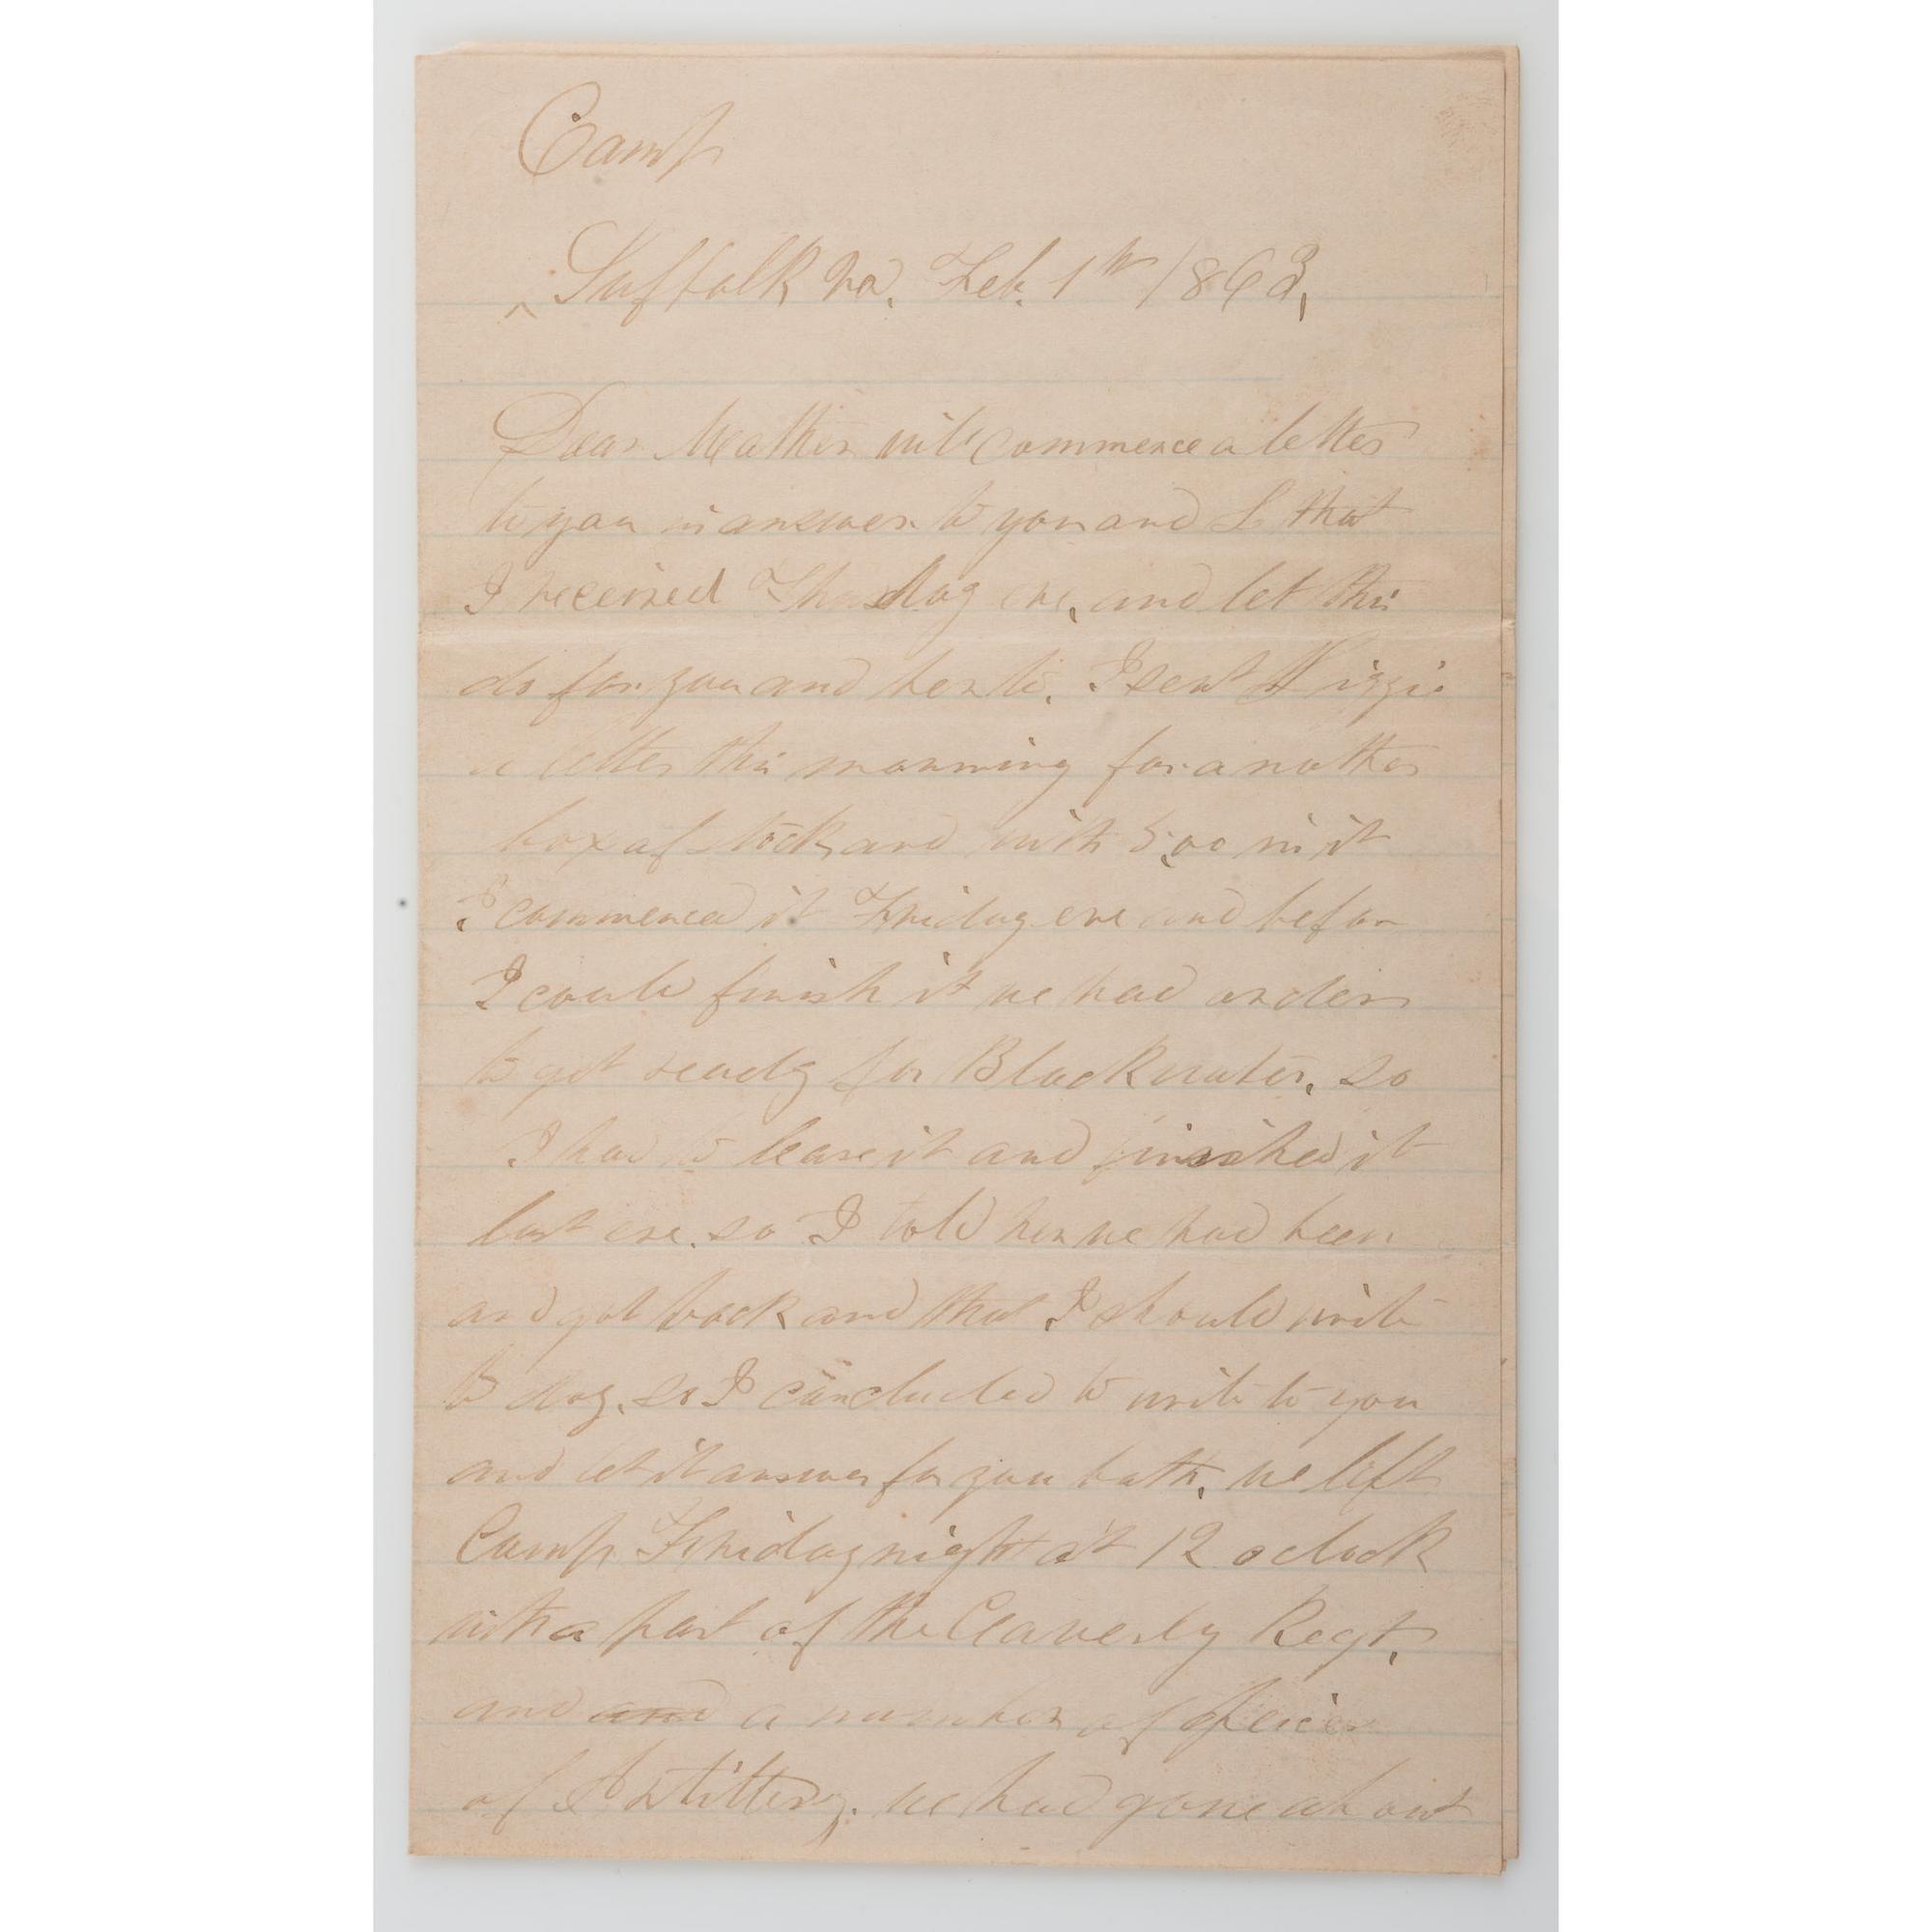 Camp
^ Suffolk Va. Feb. 1st 1863,
Dear Mother will commence a letter
to you in answer to you and L that
I received Thusday eve, and let this
do for you and her to. I sent Lizzie
a letter this morning for another
box of stock and with 5,00 in it
I commenced it Friday eve and befor
I could finish it we had orders
to get ready for Black water, so
I had to leave it and finished it
last eve. so I told her we had been
and got back and that I should write
to day, so I concluded to write to you
and let it answer for you both, we left
Camp Friday night at 12 oclock
with a part of the Caverly Regt,
and and a number of peices
of Artillery. we had gone about